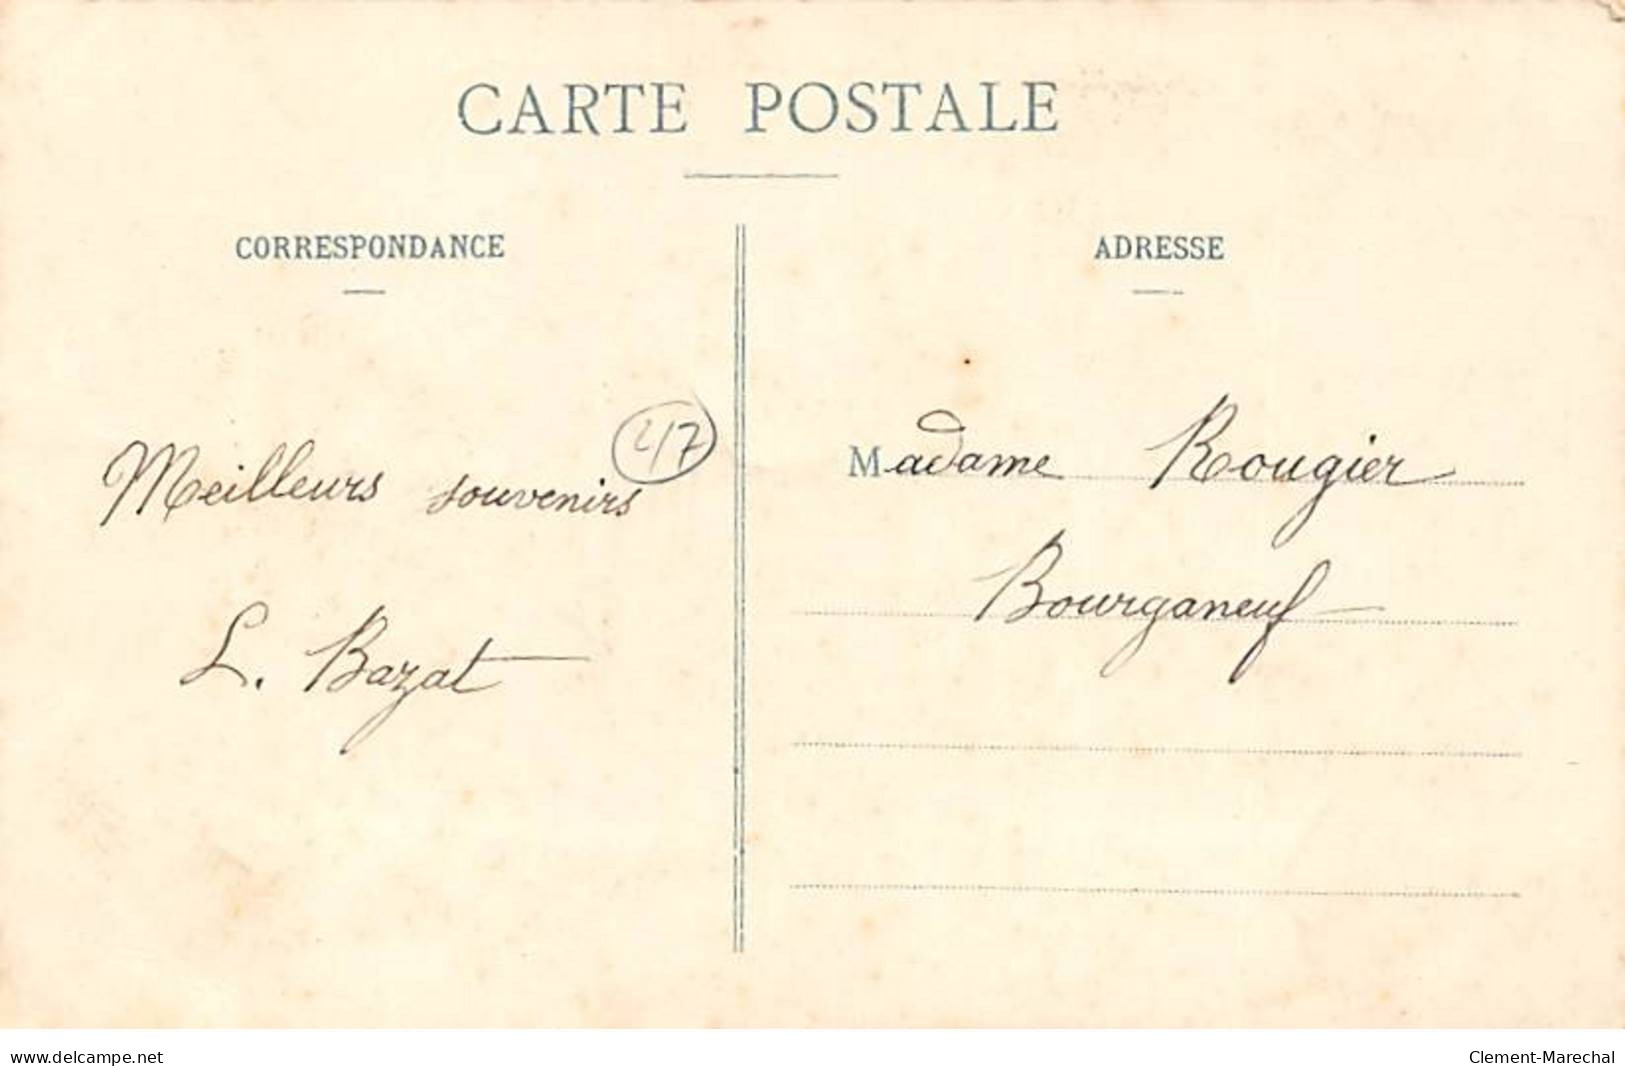 CARTE POSTALE
CORRESPONDANCE
ADRESSE
47
Meilleurs souvenirs
L. Bazat
Madame Rougier
Bourganeuf
www.delcampe.net
Clement-Marechal